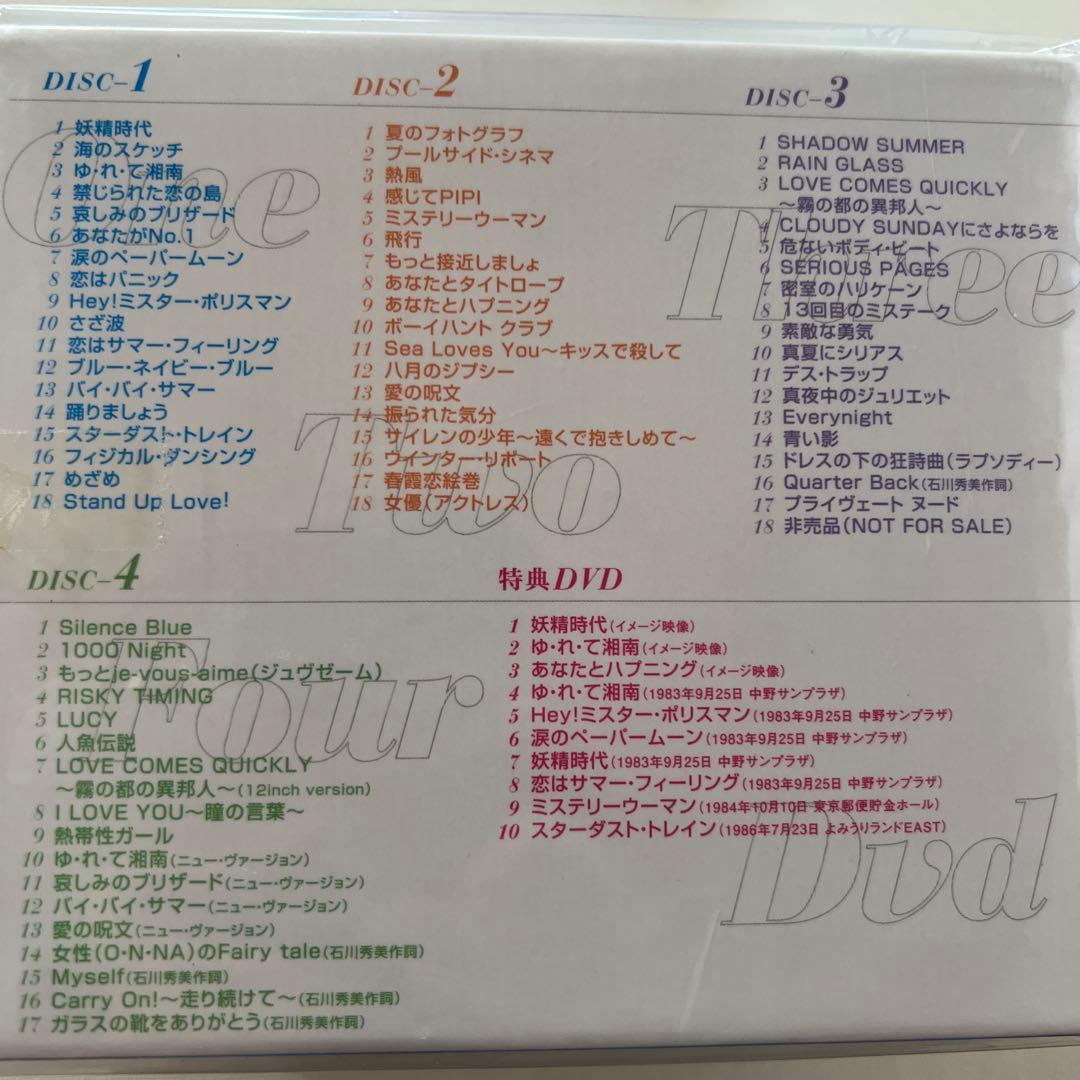 DISC-1
1 妖精時代
2 海のスケッチ
3 ゆ・れ・て湘南
4 禁じられた恋の島
5 哀しみのブリザード
6 あなたがNo.1
7 涙のペーパームーン
8 恋はパニック
9 Hey!ミスター・ポリスマン
10 さざ波
11 恋はサマー・フィーリング
12 ブルー・ネイビー・ブルー
13 バイ・バイ・サマー
14 踊りましょう
15 スターダスト・トレイン
16 フィジカル・ダンシング
17 めざめ
18 Stand Up Love!
One
DISC-2
1 夏のフォトグラフ
2 プールサイド・シネマ
3 熱風
4 感じてPIPI
5 ミステリーウーマン
6 飛行
7 もっと接近しましょ
8 あなたとタイトロープ
9 あなたとハプニング
10 ボーイハント クラブ
11 Sea Loves You～キッスで殺して
12 八月のジプシー
13 愛の呪文
14 振られた気分
15 サイレンの少年～遠くで抱きしめて～
16 ウインター・リポート
17 春霞恋絵巻
18 女優(アクトレス)
Two
DISC-3
1 SHADOW SUMMER
2 RAIN GLASS
3 LOVE COMES QUICKLY
～霧の都の異邦人～
4 CLOUDY SUNDAYにさよならを
5 危ないボディ・ビート
6 SERIOUS PAGES
7 密室のハリケーン
8 13回目のミステーク
9 素敵な勇気
10 真夏にシリアス
11 デス・トラップ
12 真夜中のジュリエット
13 Everynight
14 青い影
15 ドレスの下の狂詩曲(ラプソディー)
16 Quarter Back(石川秀美作詞)
17 プライヴェート ヌード
18 非売品(NOT FOR SALE)
Three
DISC-4
1 Silence Blue
2 1000 Night
3 もっとje-vous-aime(ジュヴゼーム)
4 RISKY TIMING
5 LUCY
6 人魚伝説
7 LOVE COMES QUICKLY
～霧の都の異邦人～(12inch version)
8 I LOVE YOU～瞳の言葉～
9 熱帯性ガール
10 ゆ・れ・て湘南(ニュー・ヴァージョン)
11 哀しみのブリザード(ニュー・ヴァージョン)
12 バイ・バイ・サマー(ニュー・ヴァージョン)
13 愛の呪文(ニュー・ヴァージョン)
14 女性(O・N・NA)のFairy tale(石川秀美作詞)
15 Myself(石川秀美作詞)
16 Carry On!～走り続けて～(石川秀美作詞)
17 ガラスの靴をありがとう(石川秀美作詞)
Four
特典DVD
1 妖精時代(イメージ映像)
2 ゆ・れ・て湘南(イメージ映像)
3 あなたとハプニング(イメージ映像)
4 ゆ・れ・て湘南(1983年9月25日 中野サンプラザ)
5 Hey!ミスター・ポリスマン(1983年9月25日 中野サンプラザ)
6 涙のペーパームーン(1983年9月25日 中野サンプラザ)
7 妖精時代(1983年9月25日 中野サンプラザ)
8 恋はサマー・フィーリング(1983年9月25日 中野サンプラザ)
9 ミステリーウーマン(1984年10月10日 東京郵便貯金ホール)
10 スターダスト・トレイン(1986年7月23日 よみうりランドEAST)
Dvd